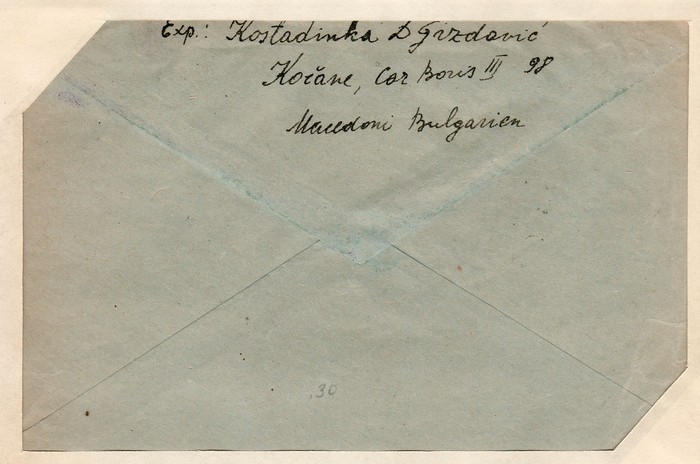 Exp.: Kostadinka D Gizdavić
Kočane, Car Boris III 98
Macedoni Bulgarien
,30